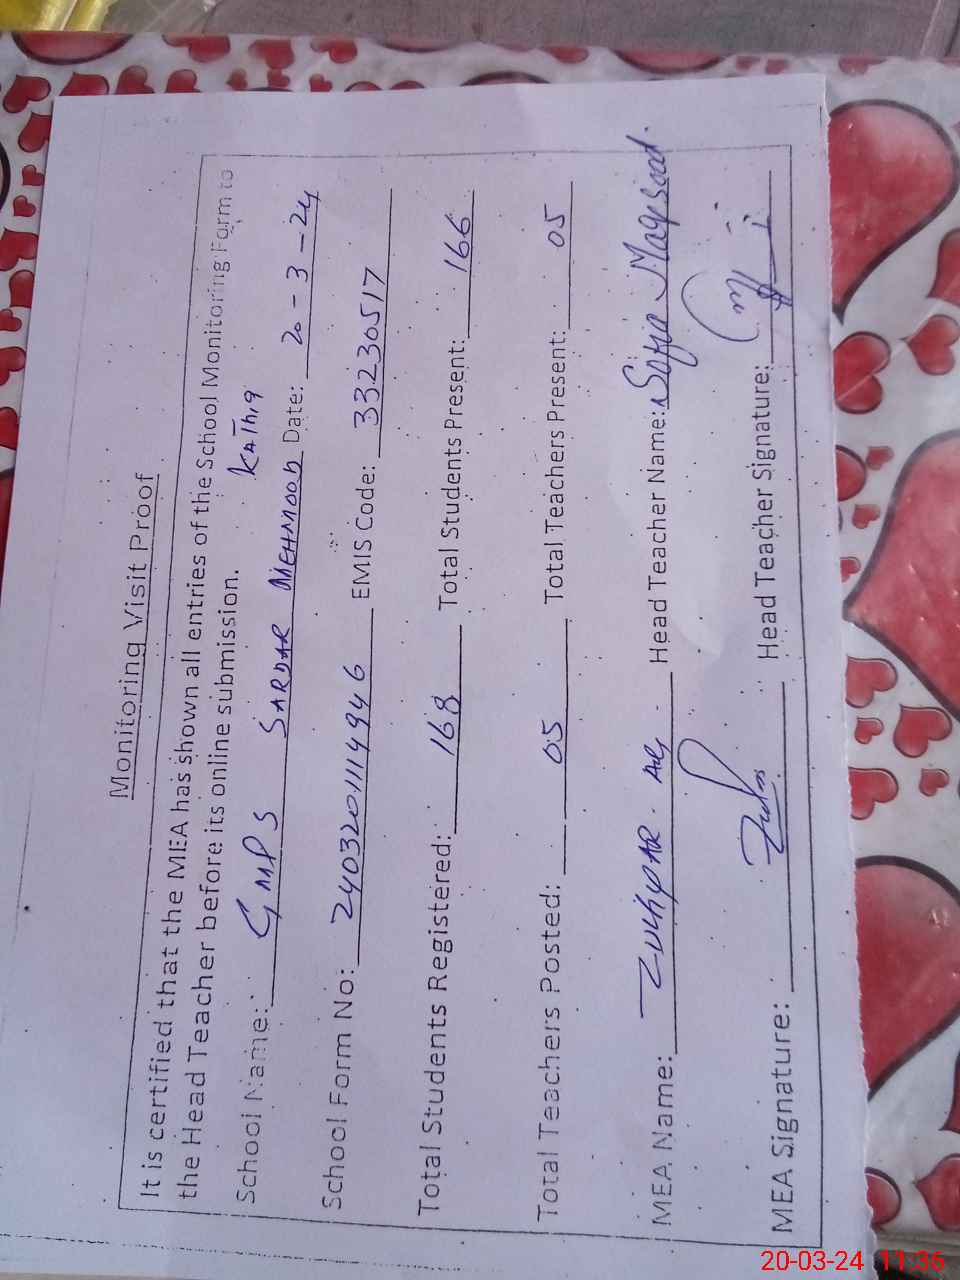 Monitoring Visit Proof
It is certified that the MEA has shown all entries of the School Monitoring Form to
the Head Teacher before its online submission.
KAThia
School Name: GMPS SARDAR MEHMOOD Date: 20-3-24
School Form No: 2403201114946 EMIS Code: 33230517
Total Students Registered: 168 Total Students Present: 166
Total Teachers Posted: 05 Total Teachers Present: 05
MEA Name: Zulhqar Ali Head Teacher Name: Sofia Maqsood.
MEA Signature: Head Teacher Signature:
20-03-24 11:36